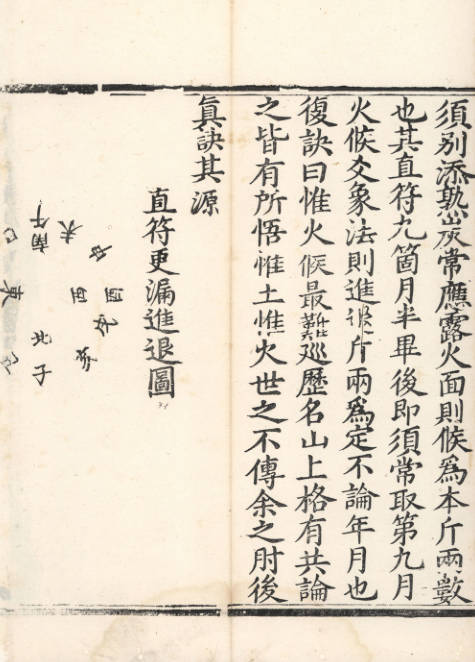 須别添熟炭常應露火面則候爲本斤兩數
也其直符九箇月半畢後即須常取第九月
火候爻象法則進退斤兩爲定不論年月也
復訣曰惟火候最難巡歷名山上格有共論
之皆有所悟惟土惟火世之不傳余之肘後
眞訣其源
直符更漏進退圖
午
南
未
東
北
子
四
亥